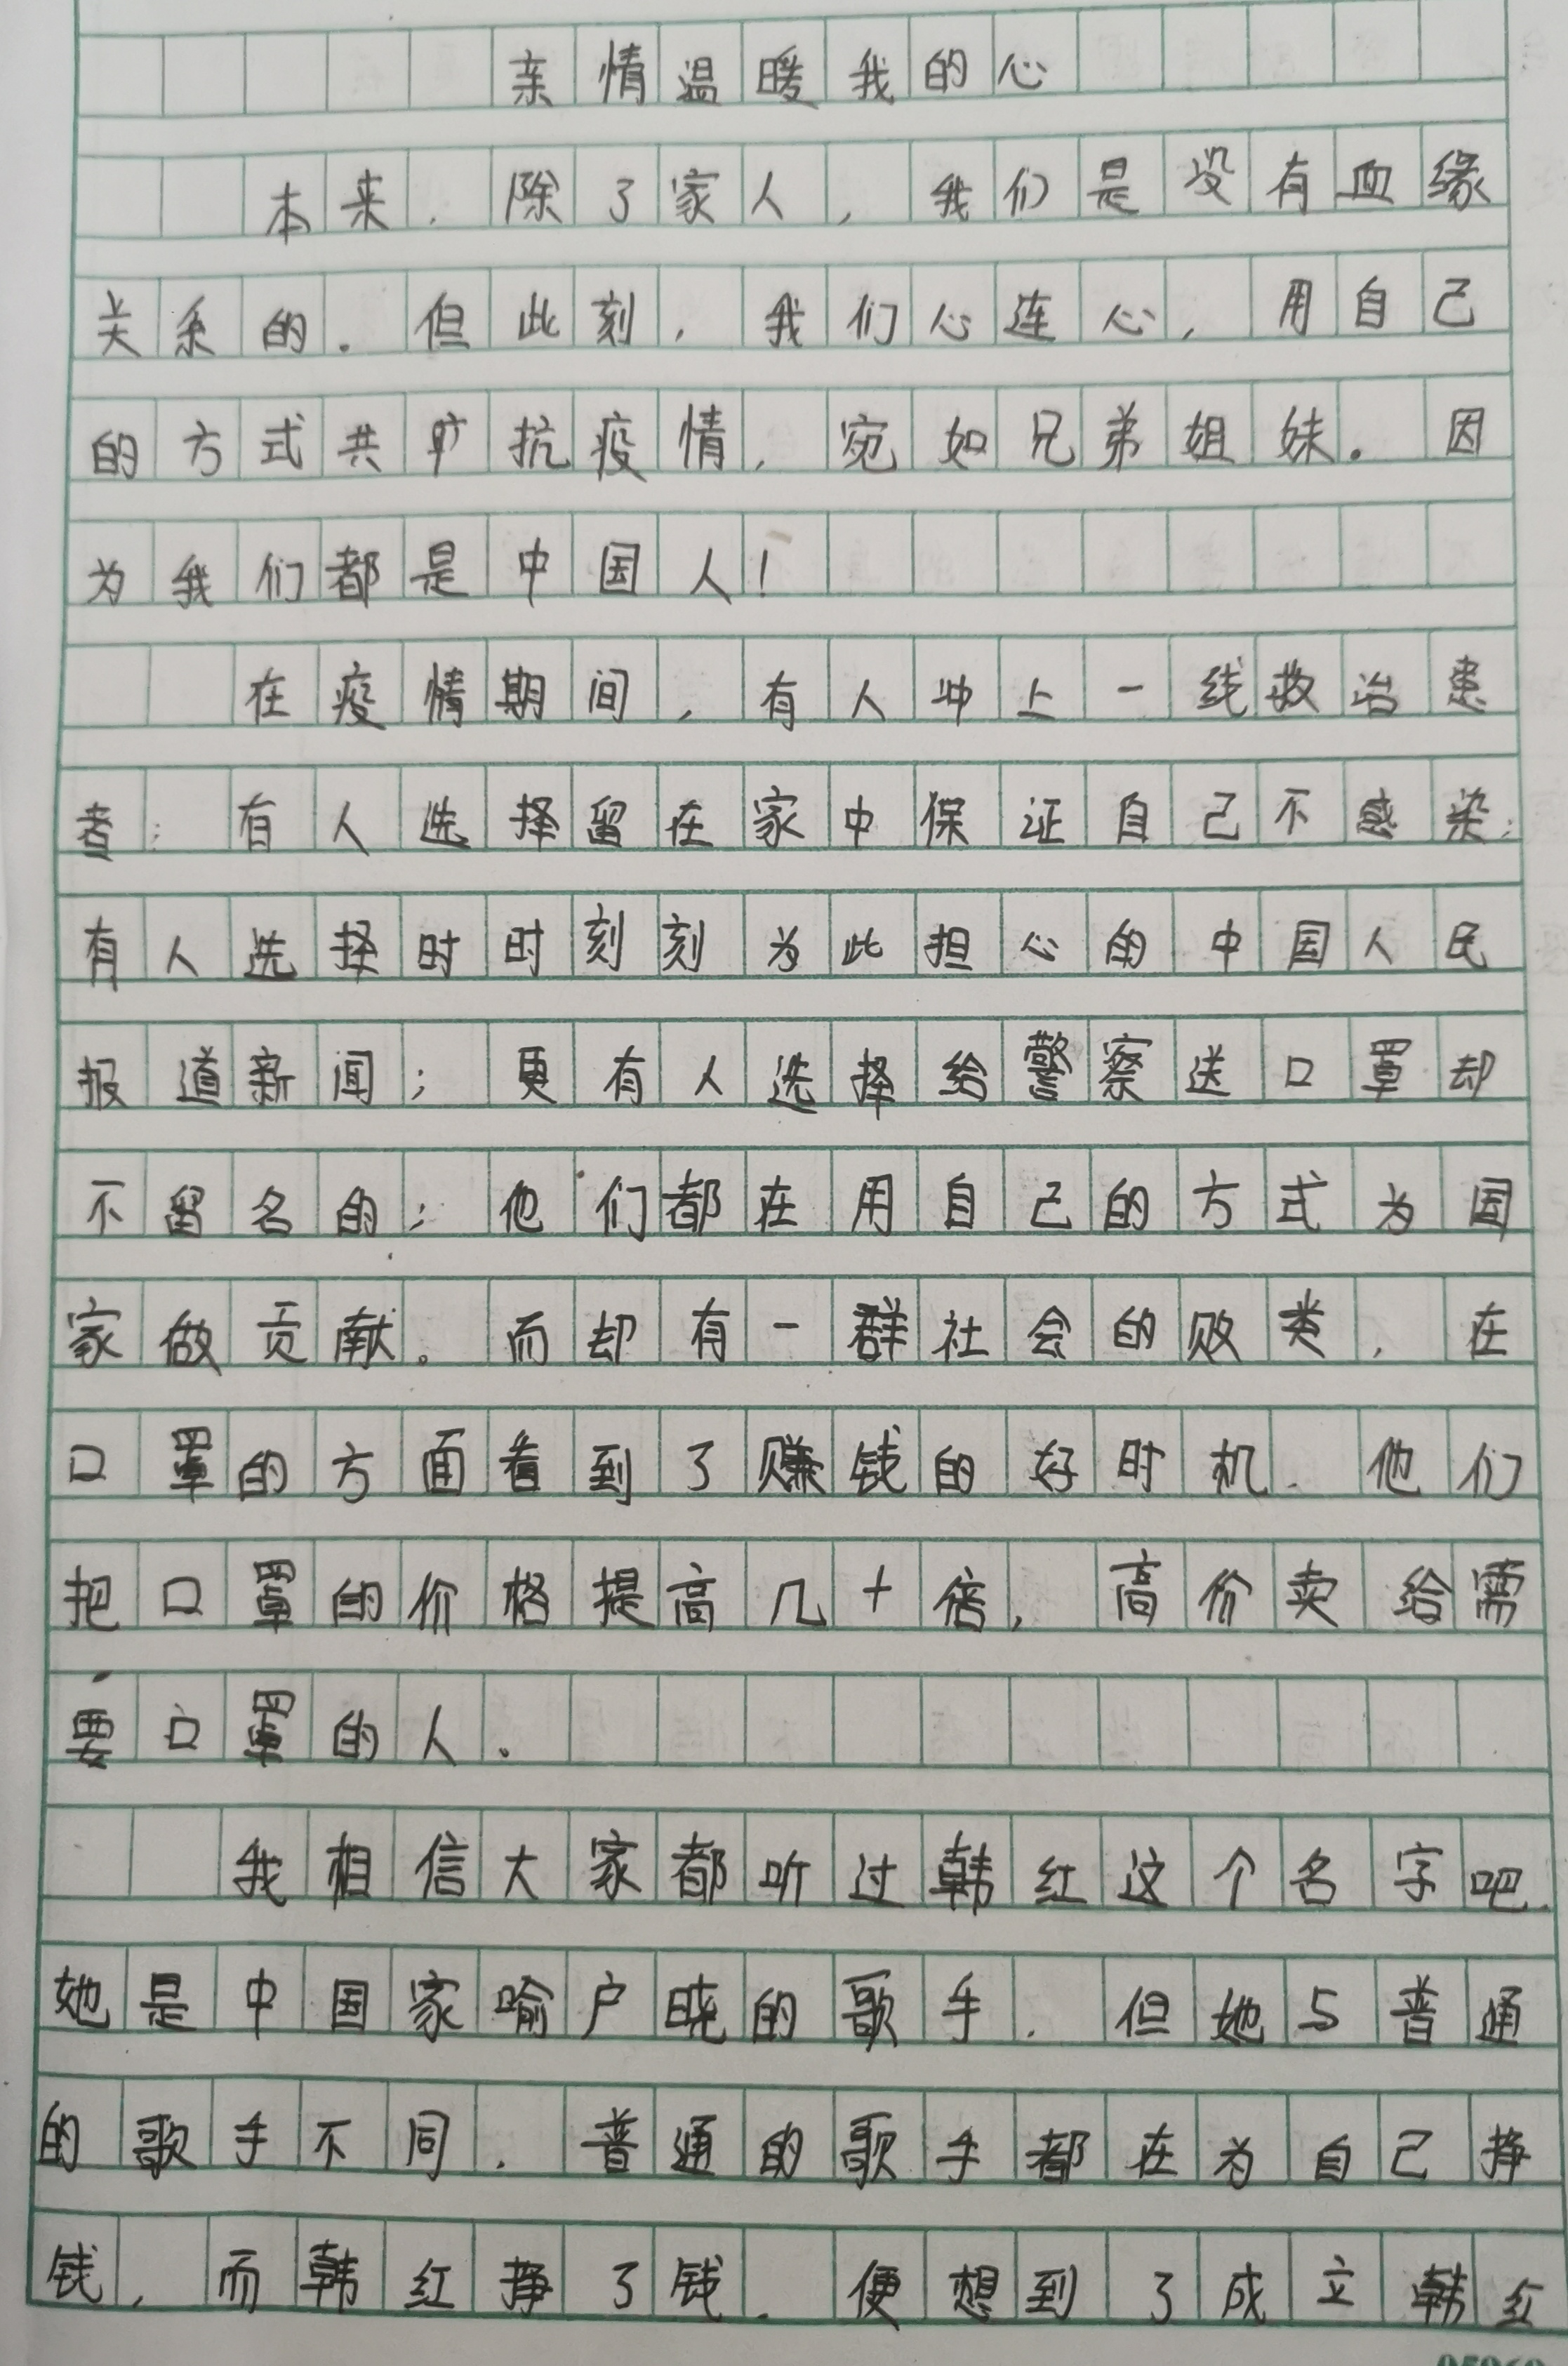 亲情温暖我的心
本来，除了家人，我们是没有血缘
关系的。但此刻，我们心连心，用自己
的方式共抗疫情，宛如兄弟姐妹。因
为我们都是中国人！
在疫情期间，有人冲上一线救治患
者；有人选择留在家中保证自己不感染；
有人选择时时刻刻为此担心的中国人民
报道新闻；更有人选择给警察送口罩却
不留名的；他们都在用自己的方式为国
家做贡献。而却有一群社会的败类，在
口罩的方面看到了赚钱的好时机．他们
把口罩的价格提高几十倍，高价卖给需
要口罩的人．
我相信大家都听过韩红这个名字吧．
她是中国家喻户晓的歌手．但她与普通
的歌手不同．普通的歌手都在为自己挣
钱，而韩红挣了钱．便想到了成立韩红